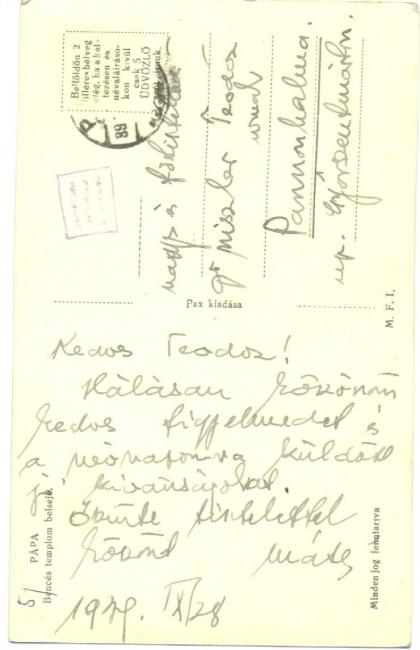 Belföldön 2
filléres bélyeg
elég, ha a kel-
tezésen és
névaláíráso-
kon kívül
csak 5
ÜDVÖZLŐ
Teodóz
úrnak
Pannonhalma
up. Győrszentmárton
Pax kiadása
M. F. I.
Kedves Teodoz!
Hálásan köszönöm
kedves figyelmedet és
a névnapomra küldött
jó kívánságokat.
Őszinte tisztelettel
köszönt Máté
IX/28
PÁPA
Bencés templom belseje
Minden jog fenntartva